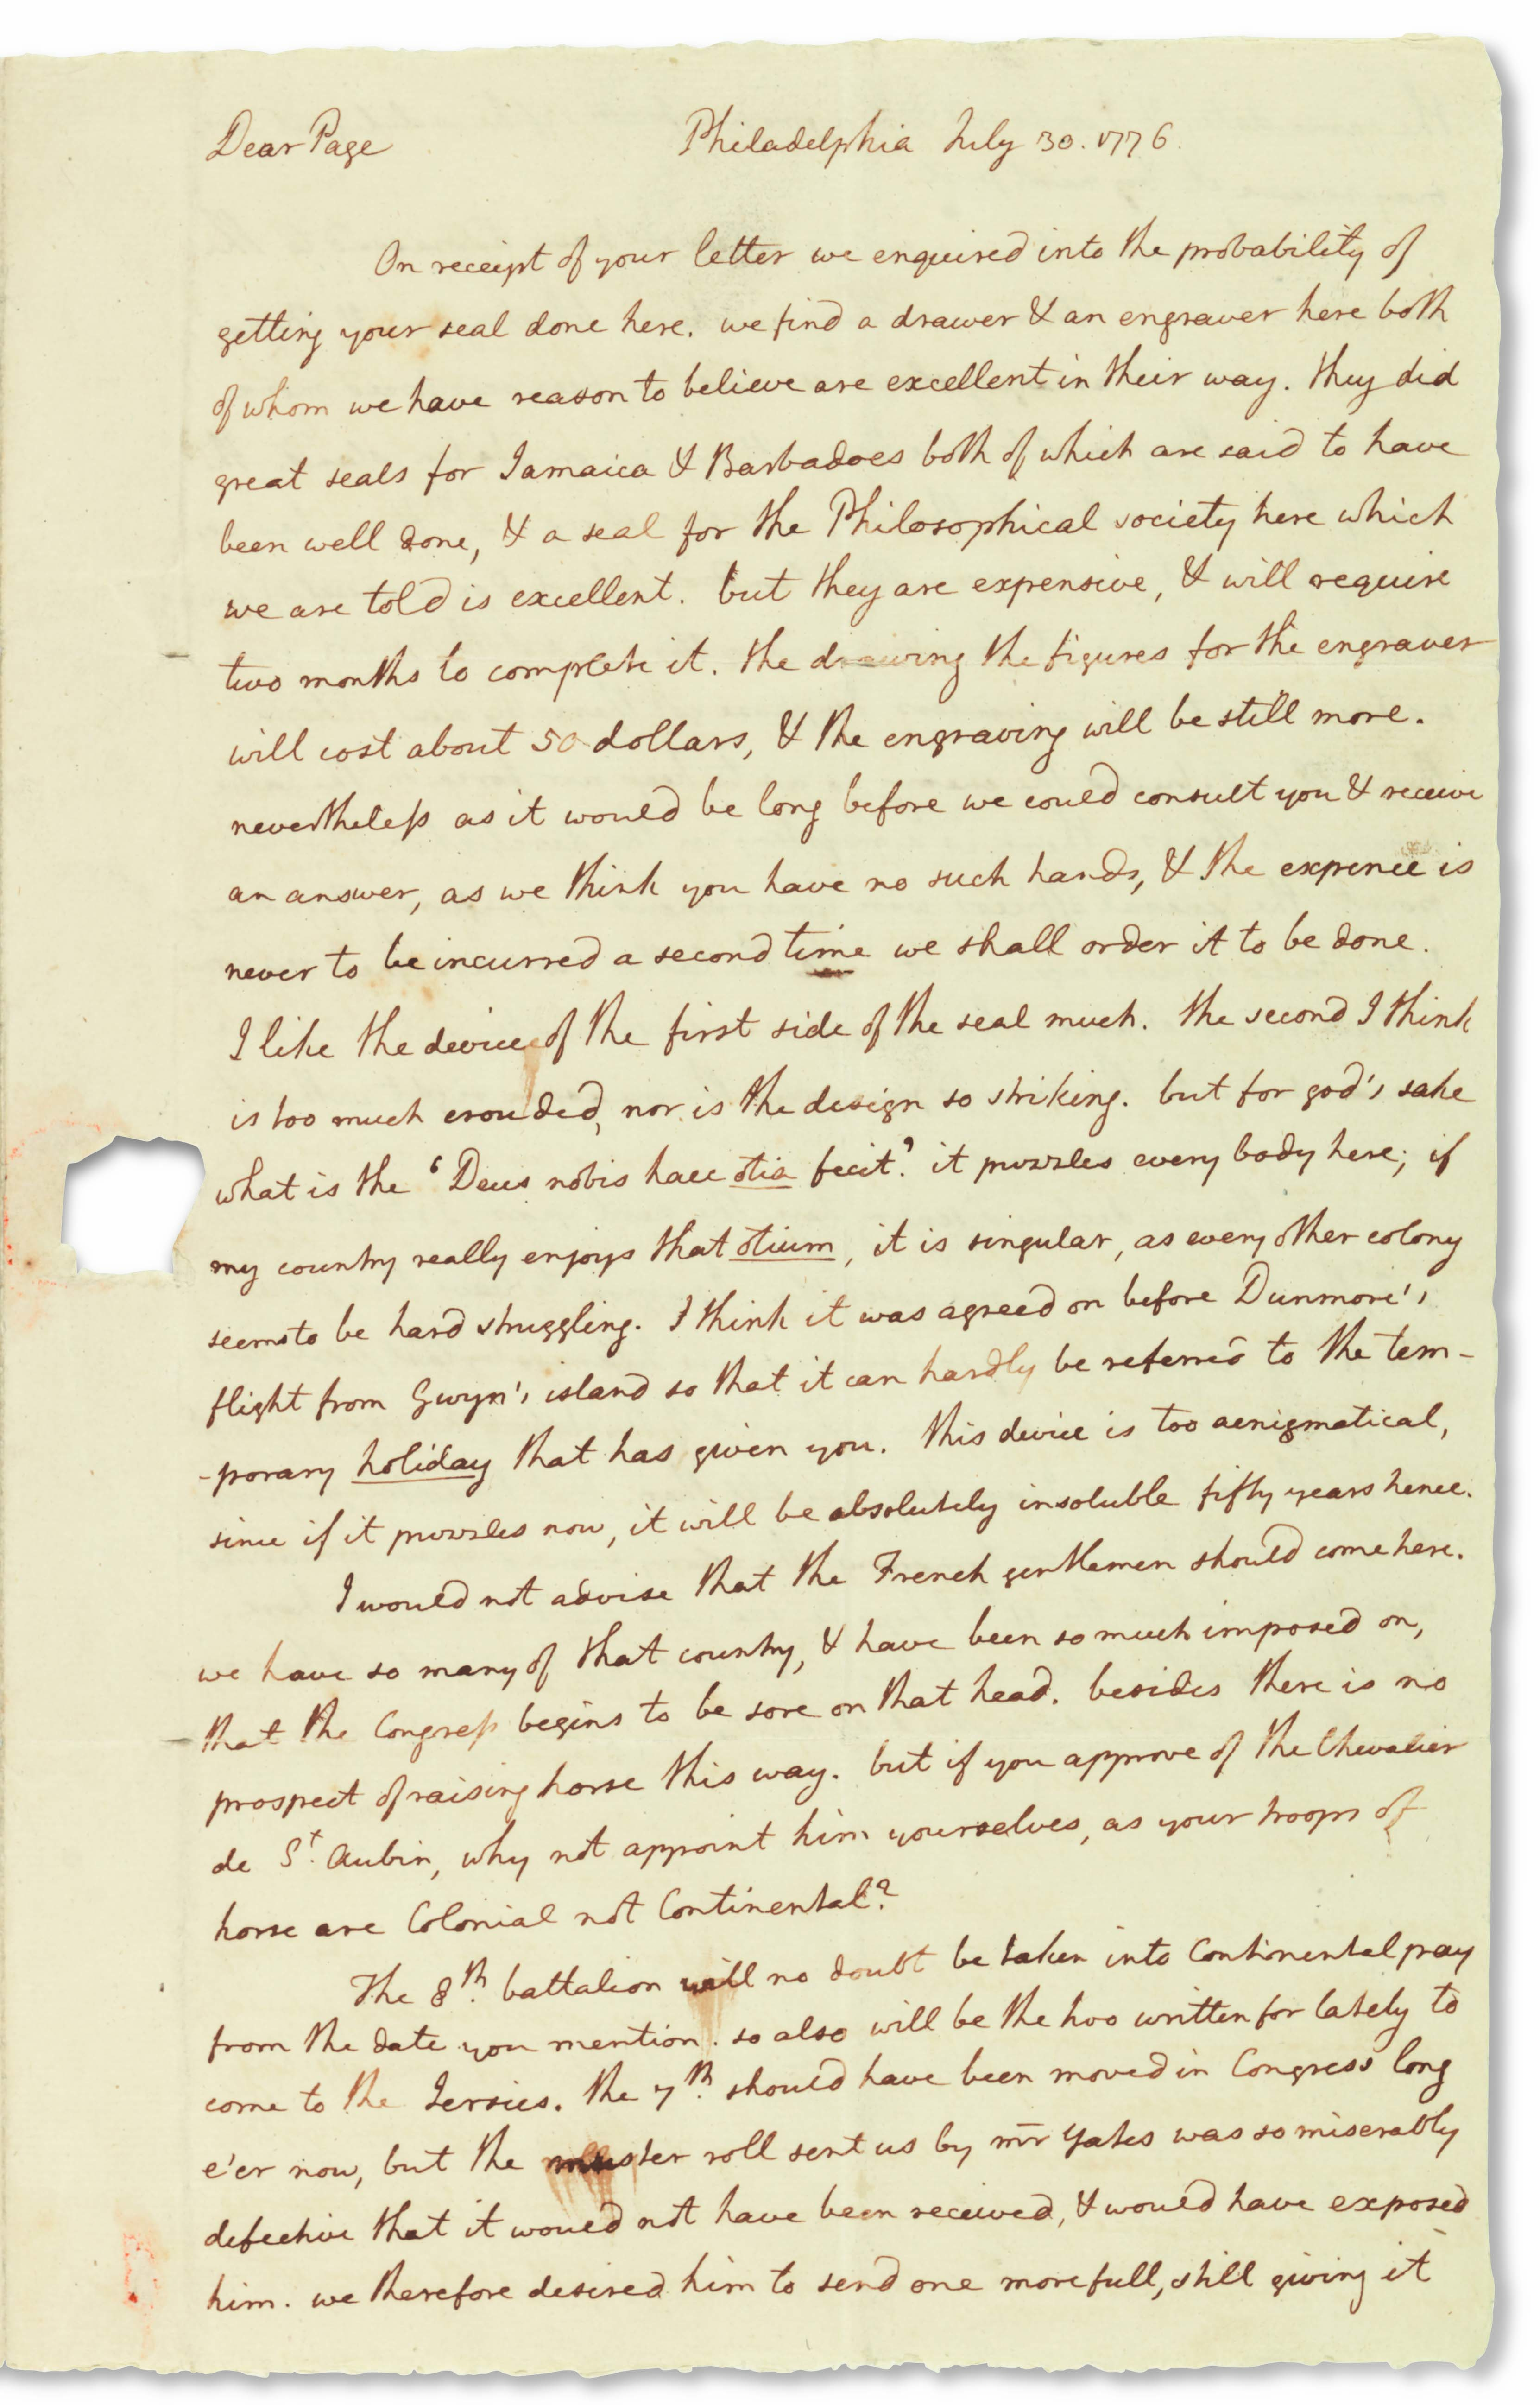 Dear Page
Philadelphia July 30. 1776.
On receipt of your letter we enquired into the probability of
getting your seal done here. we find a drawer & an engraver here both
of whom we have reason to believe are excellent in their way. they did
great seals for Jamaica & Barbadoes both of which are said to have
been well done, & a seal for the Philosophical society here which
we are told is excellent. but they are expensive, & will require
two months to complete it. the drawing the figures for the engraver
will cost about 50 dollars, & the engraving will be still more.
nevertheless as it would be long before we could consult you & receive
an answer, as we think you have no such hands, & the expence is
never to be incurred a second time we shall order it to be done.
I like the device of the first side of the seal much. the second I think
is too much crouded, nor is the design so striking. but for god's sake
what is the 'Deus nobis haec otia fecit.' it puzzles every body here; if
my country really enjoys that otium, it is singular, as every other colony
seems to be hard struggling. I think it was agreed on before Dunmore's
flight from Gwyn's island so that it can hardly be referred to the tem-
-porary holiday that has given you. this device is too aenigmatical,
since if it puzzles now, it will be absolutely insoluble fifty years hence.
I would not advise that the French gentlemen should come here.
we have so many of that country, & have been so much imposed on,
that the Congress begins to be sore on that head. besides there is no
prospect of raising horse this way. but if you approve of the Chevalier
de St. Aubin, why not appoint him yourselves, as your troops of
horse are Colonial not Continental?
The 8th. battalion will no doubt be taken into Continental pay
from the date you mention. so also will be the two written for lately to
come to the Jersies. the 7th. should have been moved in Congress long
e'er now, but the muster roll sent us by mr Yates was so miserably
defective that it would not have been received, & would have exposed
him. we therefore desired him to send one more full, still giving it